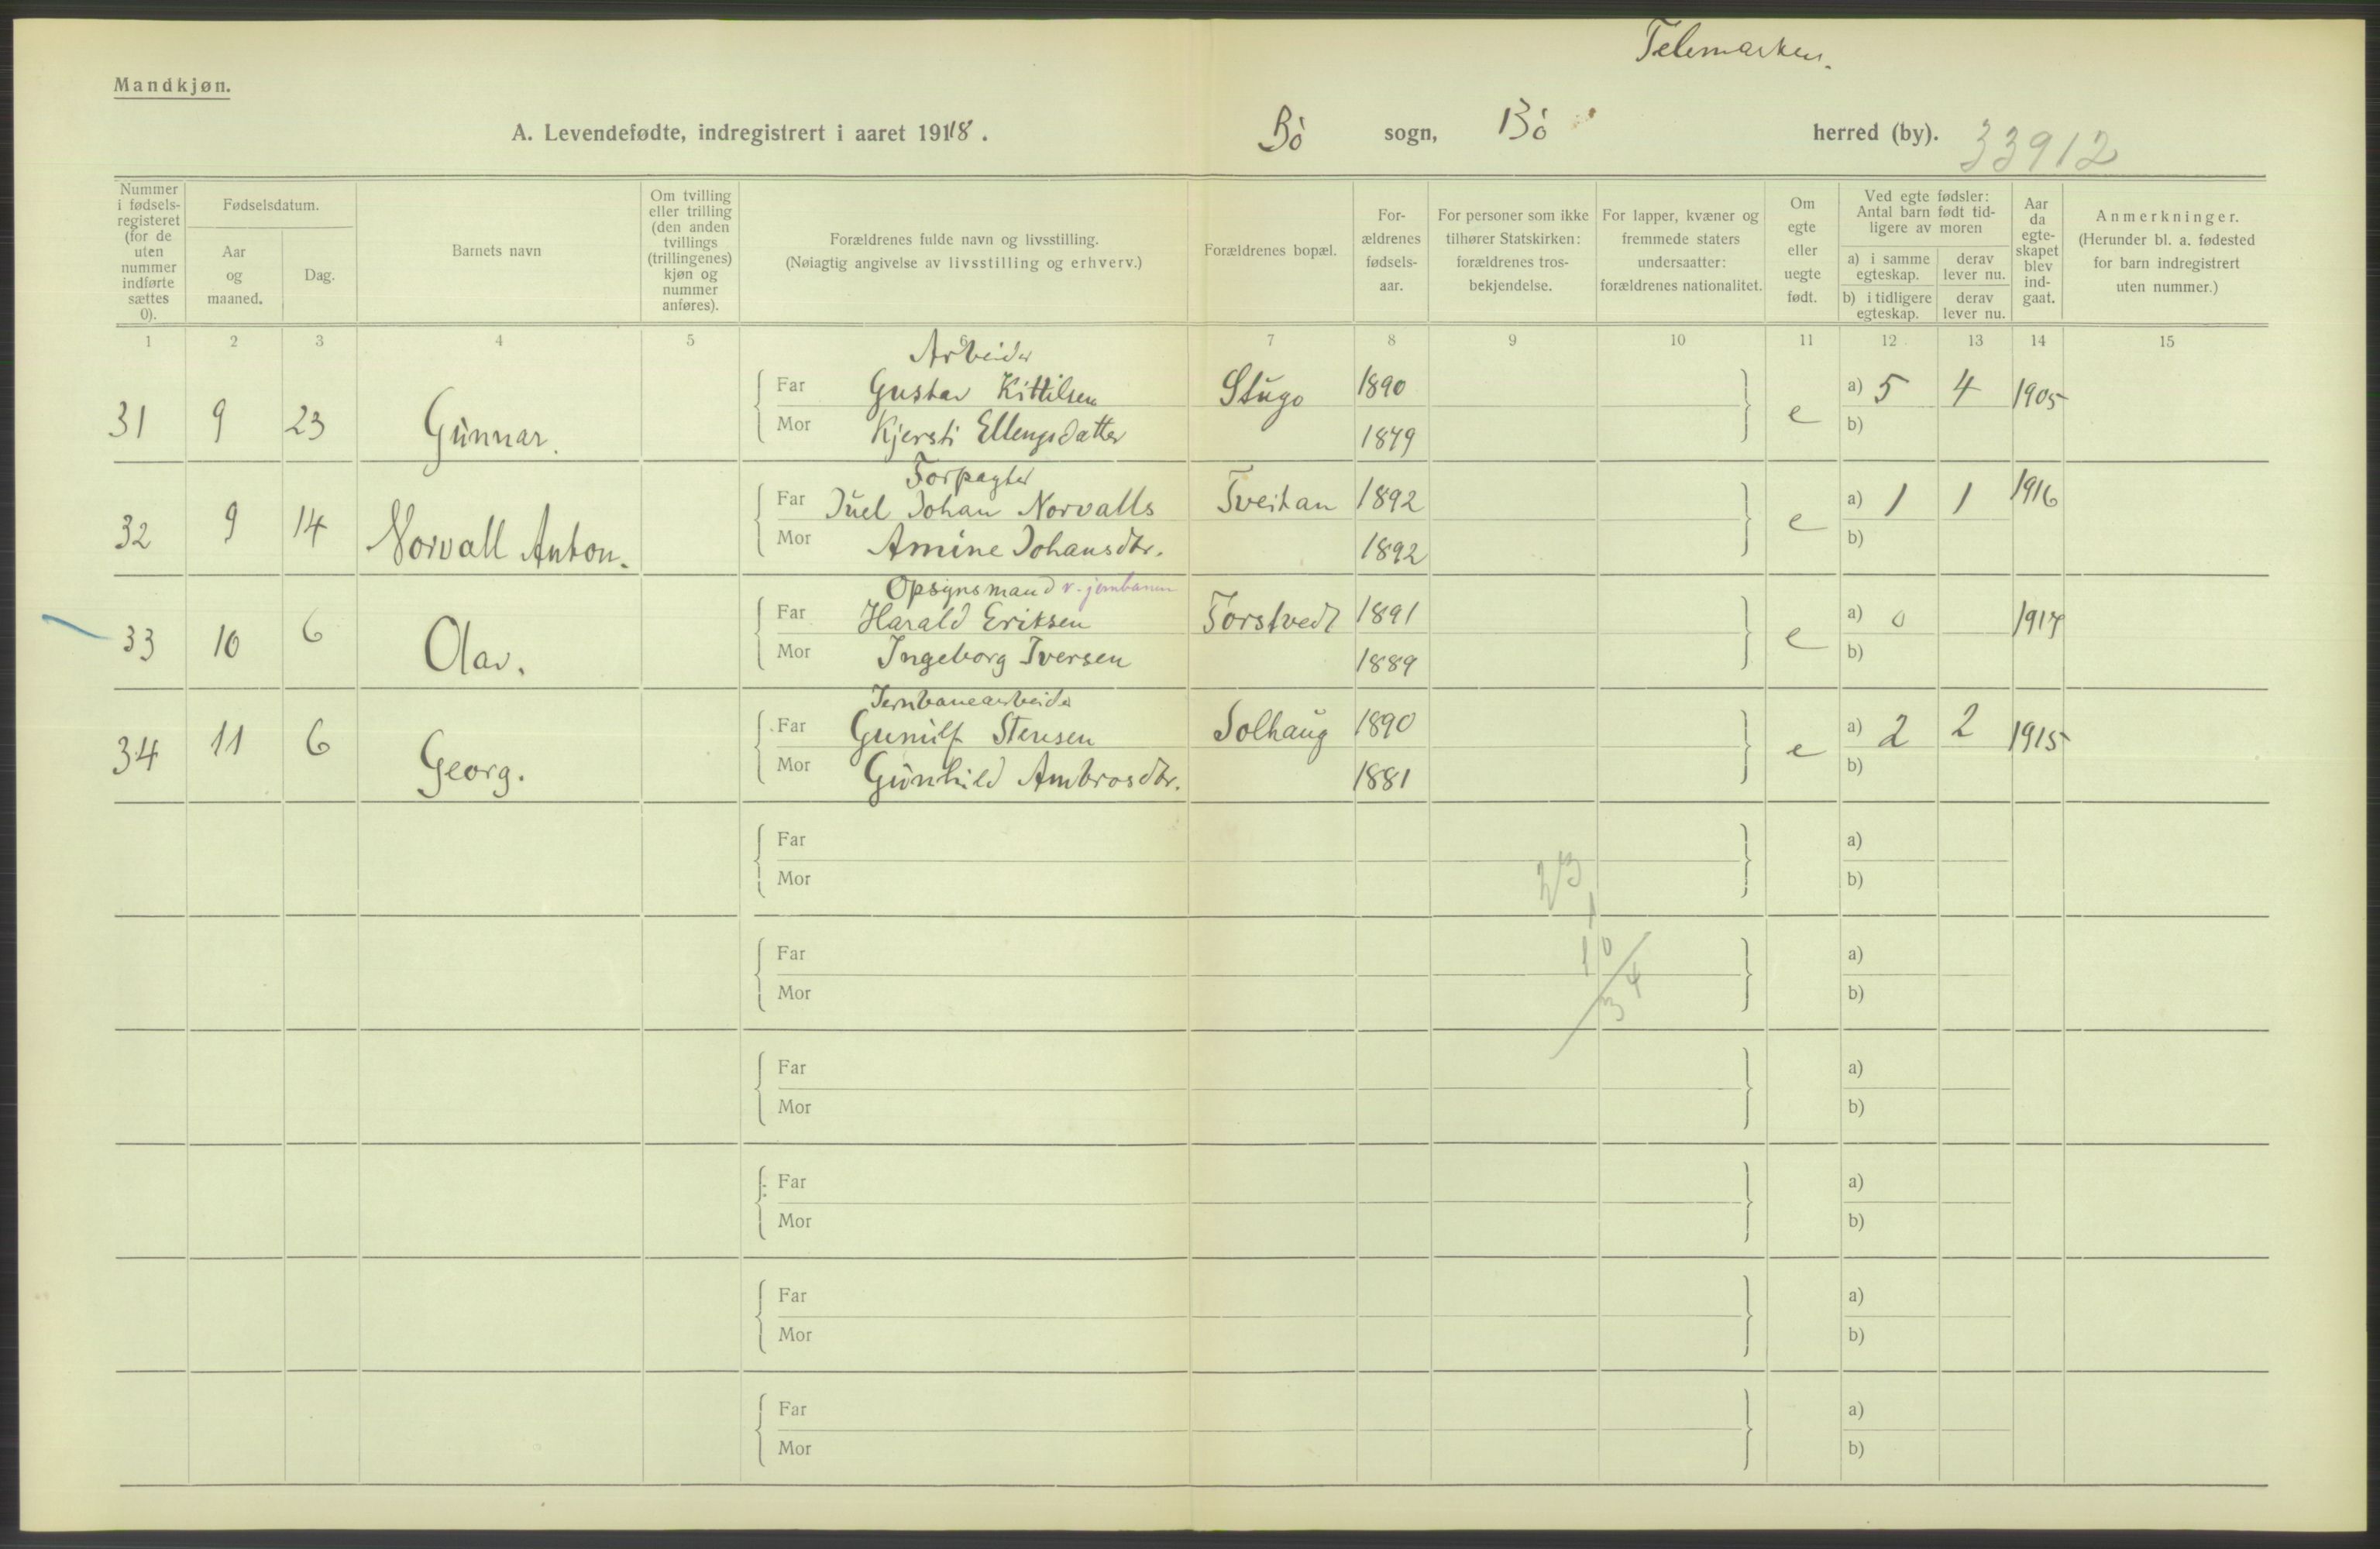 Telemarken.
Mandkjøn.
A. Levendefødte, indregistrert i aaret 1918. Bö sogn, Bö herred (by). 33912
Nummer i fødsels-registeret (for de uten nummer indførte sættes 0).
Fødselsdatum.
Aar og maaned.
Dag.
Barnets navn
Om tvilling eller trilling (den anden tvillings (trillingenes) kjøn og nummer anføres).
Forældrenes fulde navn og livsstilling.
(Nøiagtig angivelse av livsstilling og erhverv.)
Forældrenes bopæl.
For-ældrenes fødsels-aar.
For personer som ikke tilhører Statskirken: forældrenes tros-bekjendelse.
For lapper, kvæner og fremmede staters undersaatter: forældrenes nationalitet.
Om egte eller uegte født.
Ved egte fødsler: Antal barn født tid-ligere av moren
a) i samme egteskap.
derav lever nu.
b) i tidligere egteskap.
derav lever nu.
Aar da egte-skapet blev ind-gaat.
Anmerkninger.
(Herunder bl. a. fødested for barn indregistrert uten nummer.)
1 2 3 4 5 6 7 8 9 10 11 12 13 14 15
Arbeider
31 9 23 Gunnar. Far Gustav Kittilsen Stugo 1890 e a) 5 4 1905
Mor Kjersti Ellengsdatter 1879 b)
Forpagter
32 9 14 Norvall Anton. Far Juel Johan Norvalls Tveitan 1892 e a) 1 1 1916
Mor Amine Johansdtr. 1892 b)
Opsynsmand v. jernbanen
33 10 6 Olav. Far Harald Eriksen Forstvedt 1891 e a) 0 1917
Mor Ingeborg Iversen 1889 b)
Jernbanearbeider
34 11 6 Georg. Far Gunulf Stensen Solhaug 1890 e a) 2 2 1915
Mor Gunhild Ambrosdtr. 1881 b)
Far a)
Mor b)
23
1
Far a)
10
Mor b)
34
Far a)
Mor b)
Far a)
Mor b)
Far a)
Mor b)
Far a)
Mor b)